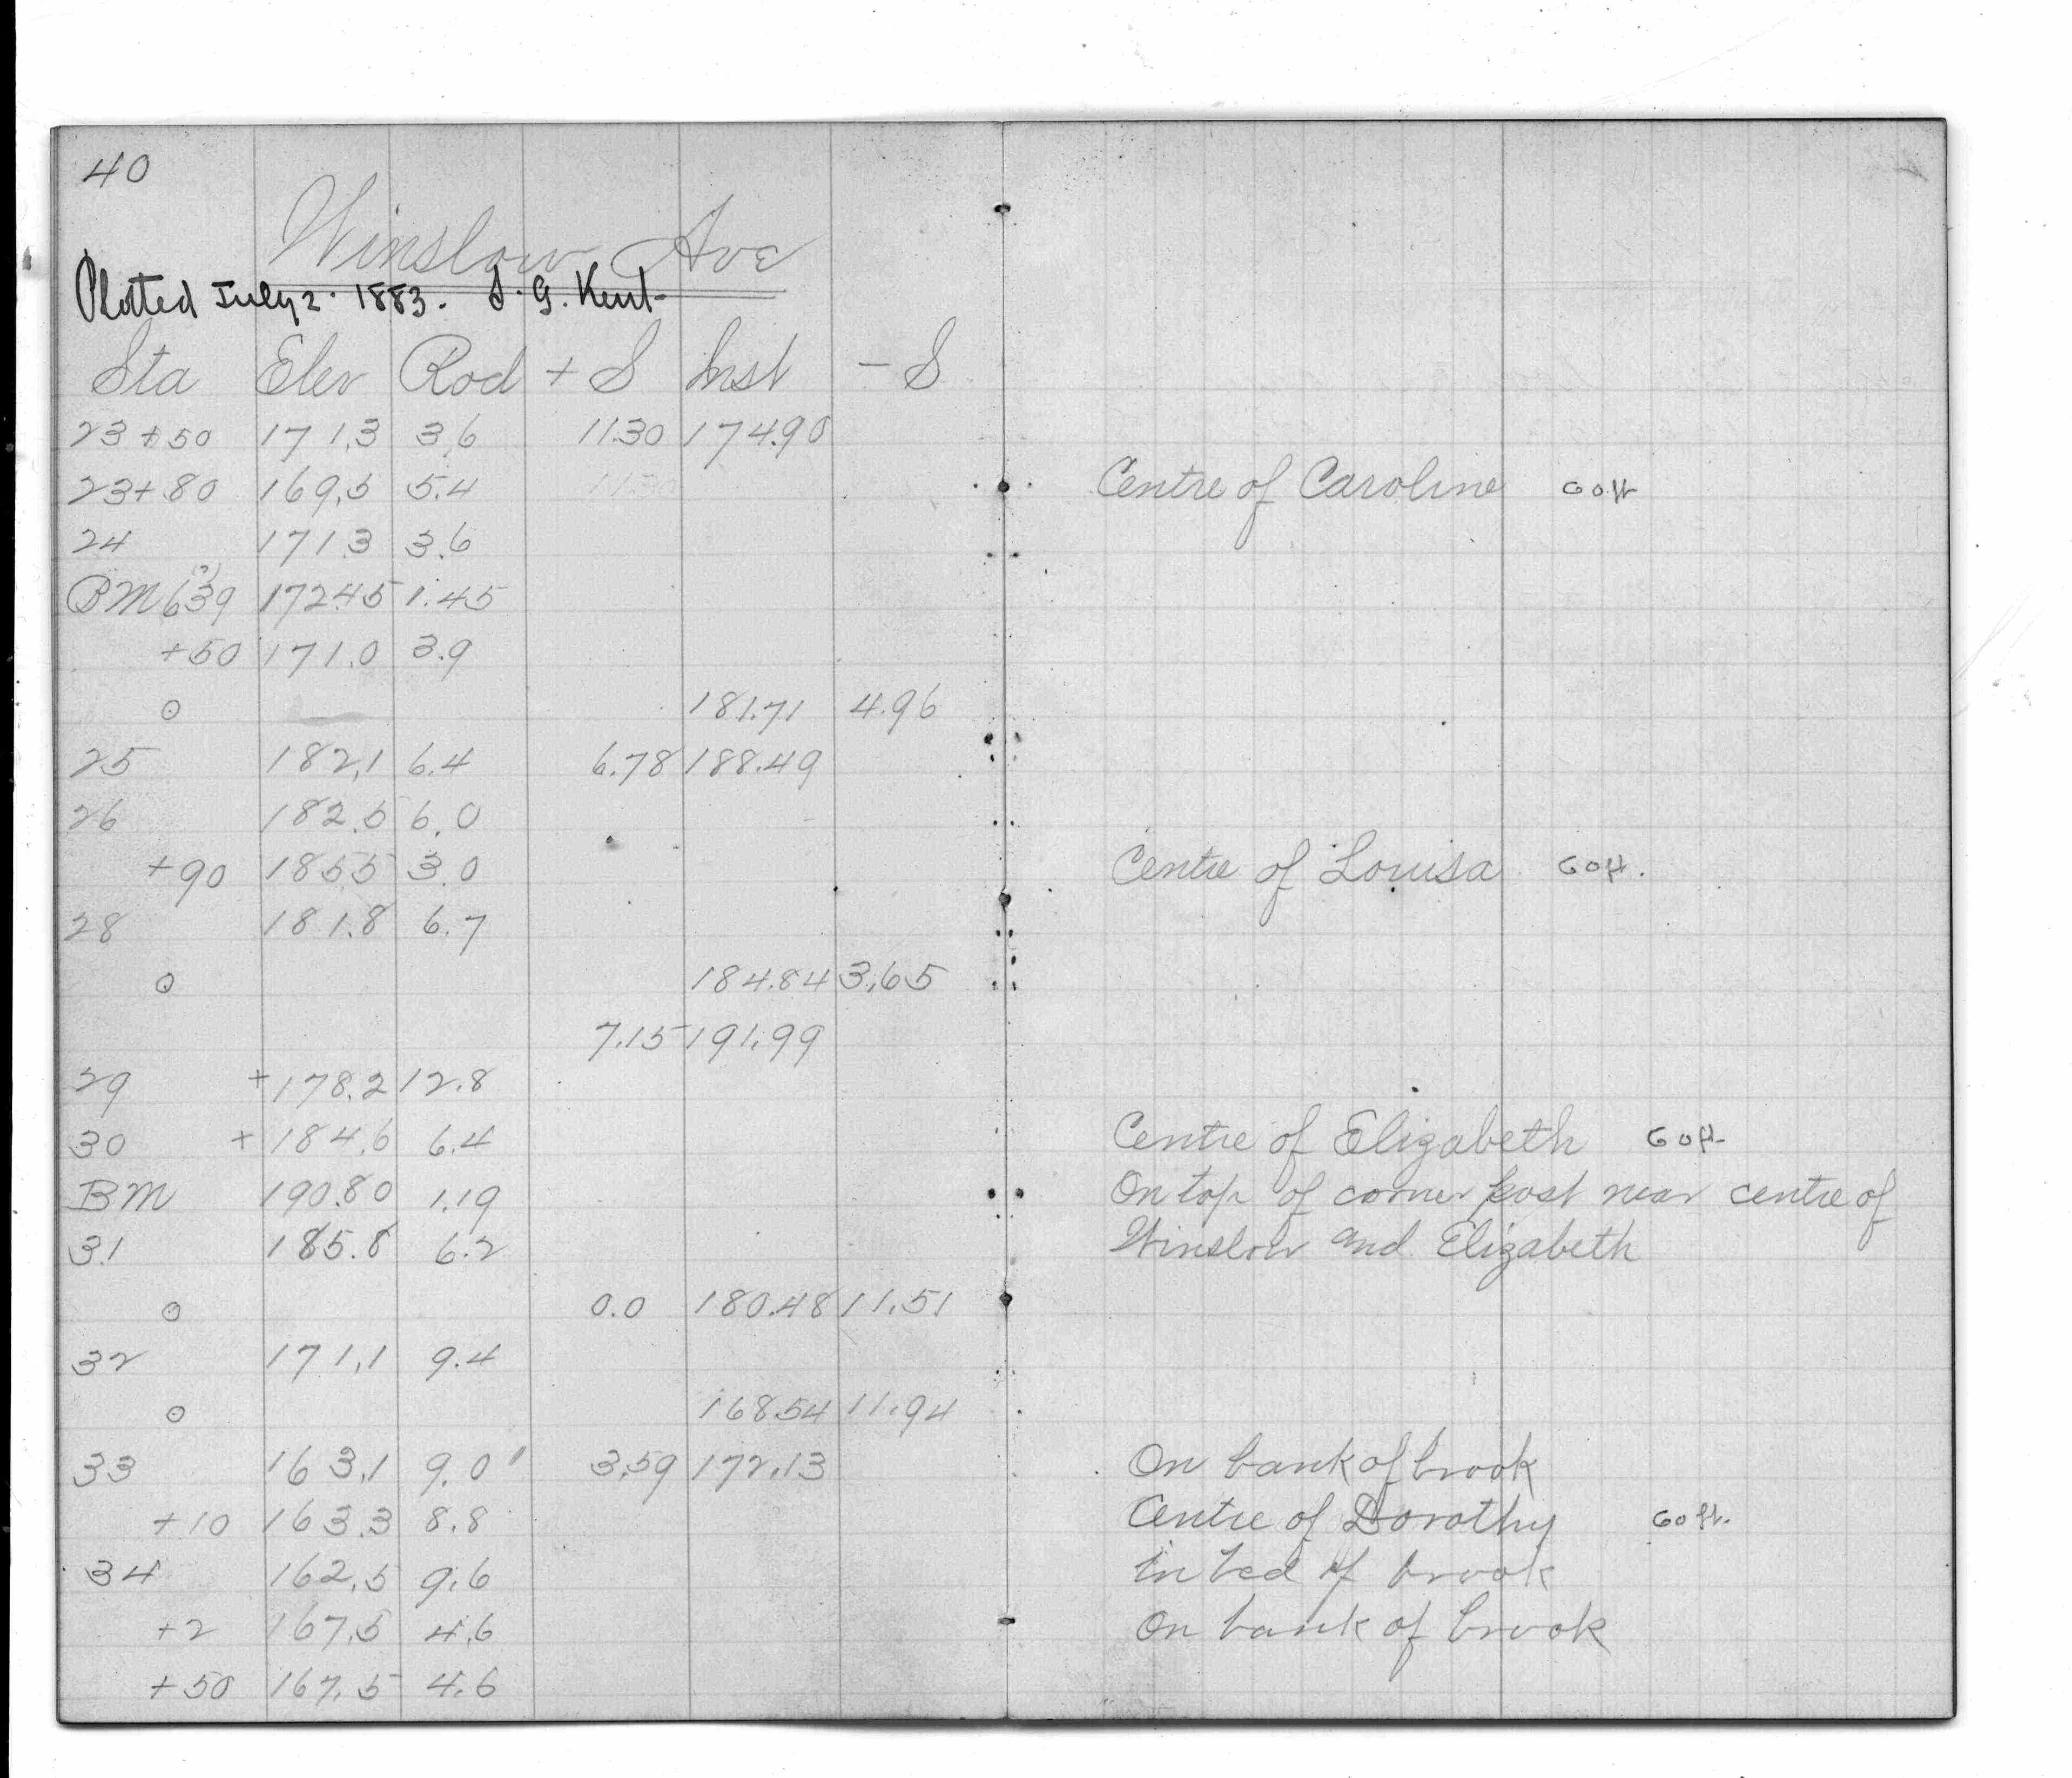 40
Winslow Ave
Plotted July 2. 1883. S. G. Kent
Sta Elev Rod + S Inst - S
23+50 171.3 3.6 11.30 174.90
23+80 169.5 5.4 11.30 Centre of Caroline 60 ft
24 171.3 3.6
(?)
BM 639 172.45 1.45
+50 171.0 3.9
o 181.71 4.96
25 182.1 6.4 6.78 188.49
26 182.5 6.0
+90 185.5 3.0 Centre of Louisa 60 ft.
28 181.8 6.7
o 184.84 3.65
7.15 191.99
29 +178.2 12.8
30 + 184.6 6.4 Centre of Elizabeth 60 ft.
BM 190.80 1.19 On top of corner post near centre of
31 185.8 6.2 Winslow and Elizabeth
o 0.0 180.48 11.51
32 171.1 9.4
o 168.54 11.94
33 163.1 9.0 3.59 172.13 On bank of brook
+10 163.3 8.8 Centre of Dorothy 60 ft.
34 162.5 9.6 In bed of brook
+2 167.5 4.6 On bank of brook
+50 167.5 4.6